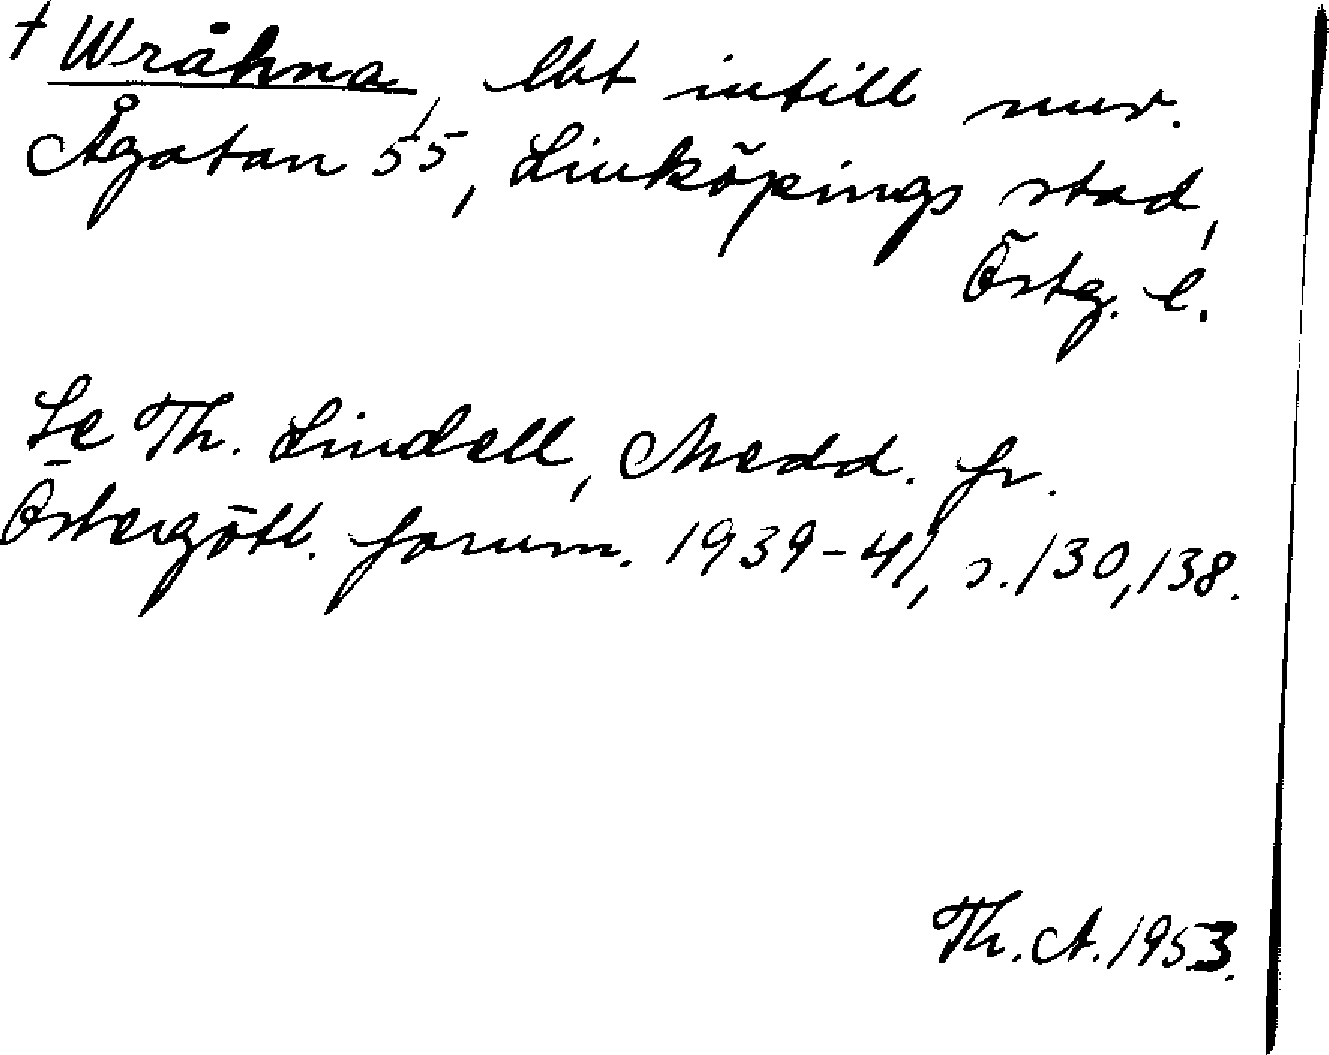 † Wråhna, lbt intill nuv.
Ågatan 55, Linköpings stad,
Östg. l.
Se Th. Lindell, Medd. fr.
Östergötl. fornm. 1939-41, s. 130, 138.
Th. A. 1953.